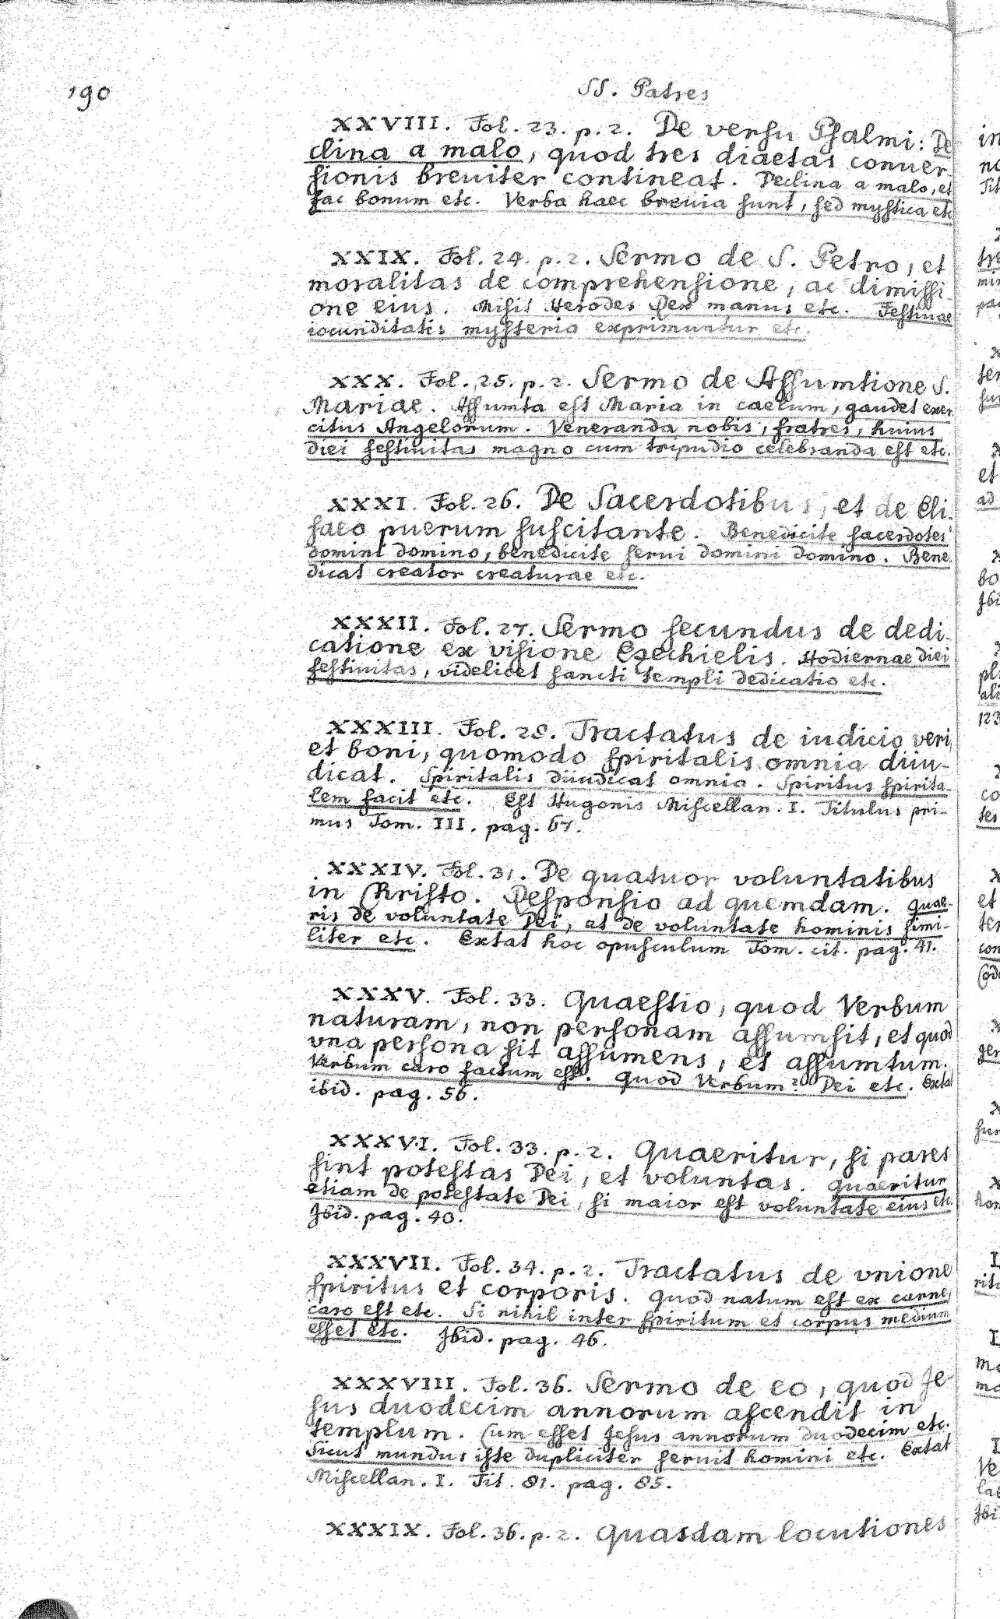 190
SS. Patres
XXVIII. Fol. 23. p. 2. De versu Psalmi: De
clina a malo, quod tres diaetas conver-
sionis breviter contineat. Declina a malo, et
fac bonum etc. Verba haec brevia sunt, sed mystica etc
XXIX. Fol. 24. p. 2. Sermo de S. Petro, et
moralitas de comprehensione, ac dimissi
one eius. Misit Herodes Rex manus etc. Festivae
iocunditatis mysteria exprimuntur etc.
XXX. Fol. 25. p. 2. Sermo de Assumtione S.
Mariae. Assumta est Maria in caelum, gaudet exer
citus Angelorum. Veneranda nobis, fratres, huius
diei festivitas magno cum tripudio celebranda est etc.
XXXI. Fol. 26. De Sacerdotibus, et de Eli.
saeo puerum suscitante. Benedicite sacerdotes
domini domino, benedicite servi domini domino. Bene
dicat creator creaturae etc.
XXXII. Fol. 27. Sermo secundus de dedi
catione ex visione Ezechielis. Hodiernae diei
festivitas, videlicet sancti templi dedicatio etc.
XXXIII. Fol. 28. Tractatus de iudicio veri,
et boni, quomodo spiritalis omnia diiu-
dicat. Spiritalis diiudicat omnia. Spiritus spirita-
lem facit etc. Est Hugonis Miscellan. I. Titulus pri-
mus Tom. III. pag. 67.
XXXIV. Fol. 31. De quatuor voluntatibus
in Christo. Responsio ad quemdam. Quae-
ris de voluntate Dei, et de voluntate hominis simi-
liter etc. Extat hoc opusculum Tom. cit. pag. 41.
XXXV. Fol. 33. Quaestio, quod Verbum
naturam, non personam assumsit, et quod
vna persona sit assumens, et assumtum.
Verbum caro factum est. Quod Verbum? Dei etc. Extat
ibid. pag. 56.
XXXVI. Fol. 33. p. 2. Quaeritur, si pares
sint potestas Dei, et voluntas. Quaeritur
etiam de potestate Dei, si maior est voluntate eius etc.
Ibid. pag. 40.
XXXVII. Fol. 34. p. 2. Tractatus de vnione
spiritus et corporis. Quod natum est ex carne,
caro est etc. Si nihil inter spiritum et corpus medium
esset etc. Ibid. pag. 46.
XXXVIII. Fol. 36. Sermo de eo, quod Je-
sus duodecim annorum ascendit in
templum. Cum esset Jesus annorum duodecim etc.
Sicut mundus iste dupliciter servit homini etc. Extat
Miscellan. I. Tit. 81. pag. 85.
XXXIX. Fol. 36. p. 2. Quasdam locutiones